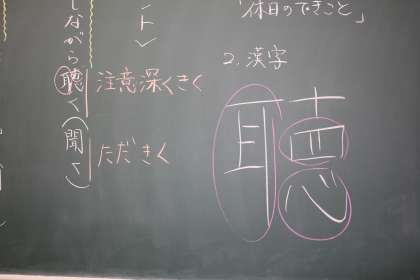 「休日のできこと」
2. 漢字
聴
ント〉
しながら聴く(聞く)
注意深くきく
ただきく